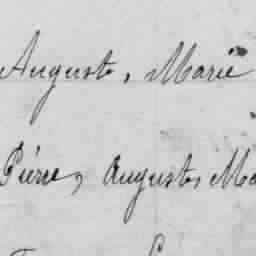 Auguste, Marie
Pierre, Auguste, Ma